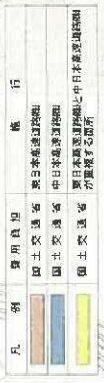 凡　例　費用負担　施　行
国土交通省　東日本高速道路㈱
国土交通省　中日本高速道路㈱
国土交通省　東日本高速道路㈱と中日本高速道路㈱
が重複する箇所